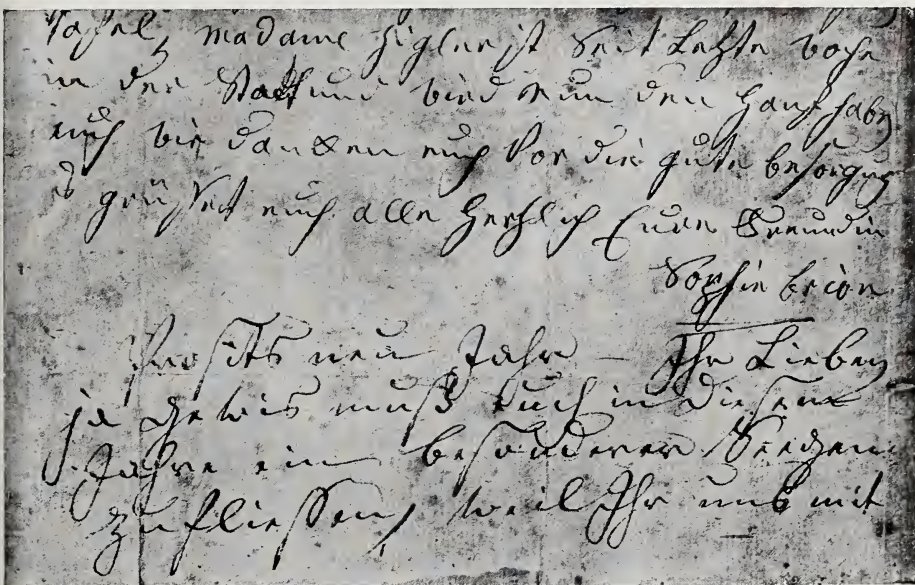 Tafel, madame Higler ist seit Letzte voche
in der Statt und vird nun den Hanf haben
auch vir danken euch vor die gute besorgung
es grüsset euch alle Hertzlich Eure Freundin
Sophie brion
Prosits neu Jahr — Ihr Lieben
ja gewis muß Euch in diesem
Jahre ein besonderer Seegen
zufliessen, weil Ihr uns mit